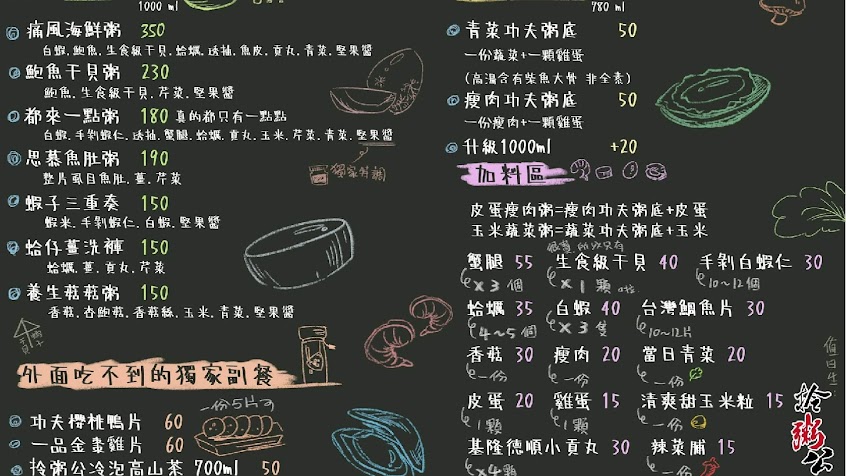 1000 ml
痛風海鮮粥 350
白蝦.鮑魚.生食級干貝.蛤蠣.透抽.魚皮.貢丸.青菜.堅果醬
鮑魚干貝粥 230
鮑魚.生食級干貝.芹菜.堅果醬
都來一點粥 180 真的都只有一點點
白蝦.手剝蝦仁.透抽.蟹腿.蛤蠣.貢丸.玉米.芹菜.青菜.堅果醬
獨家特調
思慕魚肚粥 190
整片虱目魚肚.薑.芹菜
蝦子三重奏 150
蝦米.手剝蝦仁.白蝦.堅果醬
蛤仔薑洗褲 150
蛤蠣.薑.貢丸.芹菜
養生菇菇粥 150
香菇.杏鮑菇.香菇絲.玉米.青菜.堅果醬
外面吃不到的獨家副餐
一份5片
功夫櫻桃鴨片 60
一品金棗雞片 60
拎粥公冷泡高山茶 700ml 50
780 ml
青菜功夫粥底 50
一份蔬菜+一顆雞蛋
(高湯含有柴魚大骨 非全素)
瘦肉功夫粥底 50
一份瘦肉+一顆雞蛋
升級1000ml +20
加料區
皮蛋瘦肉粥=瘦肉功夫粥底+皮蛋
玉米蔬菜粥=蔬菜功夫粥底+玉米
蟹腿 55 生食級干貝 40 手剝白蝦仁 30
×3個 ×1顆 10~12個
蛤蠣 35 白蝦 40 台灣鯛魚片 30
4~5個 ×3隻 10~12片
香菇 30 瘦肉 20 當日青菜 20
一份 一份 一份
皮蛋 20 雞蛋 15 清爽甜玉米粒 15
1顆 1顆 一份
基隆德順小貢丸 30 辣菜脯 15
×4顆 一份
值日生
拎粥公